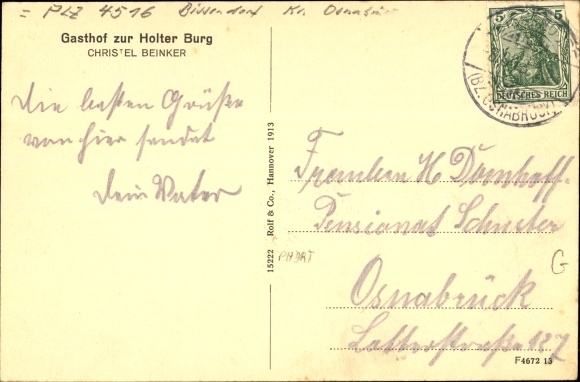 = PLZ 4516 Bissendorf Kr. Osnabrück
Gasthof zur Holter Burg
CHRISTEL BEINKER
Die besten Grüße
von hier sendet
Dein Vater
15222 Rolf & Co., Hannover 1913
5 5
DEUTSCHES REICH
(BZ. OSNABRÜCK)
Fräulein H Dornhoff
Pensionat Schuster
PHART
G
Osnabrück
Lotterstraße 127
F4672 13